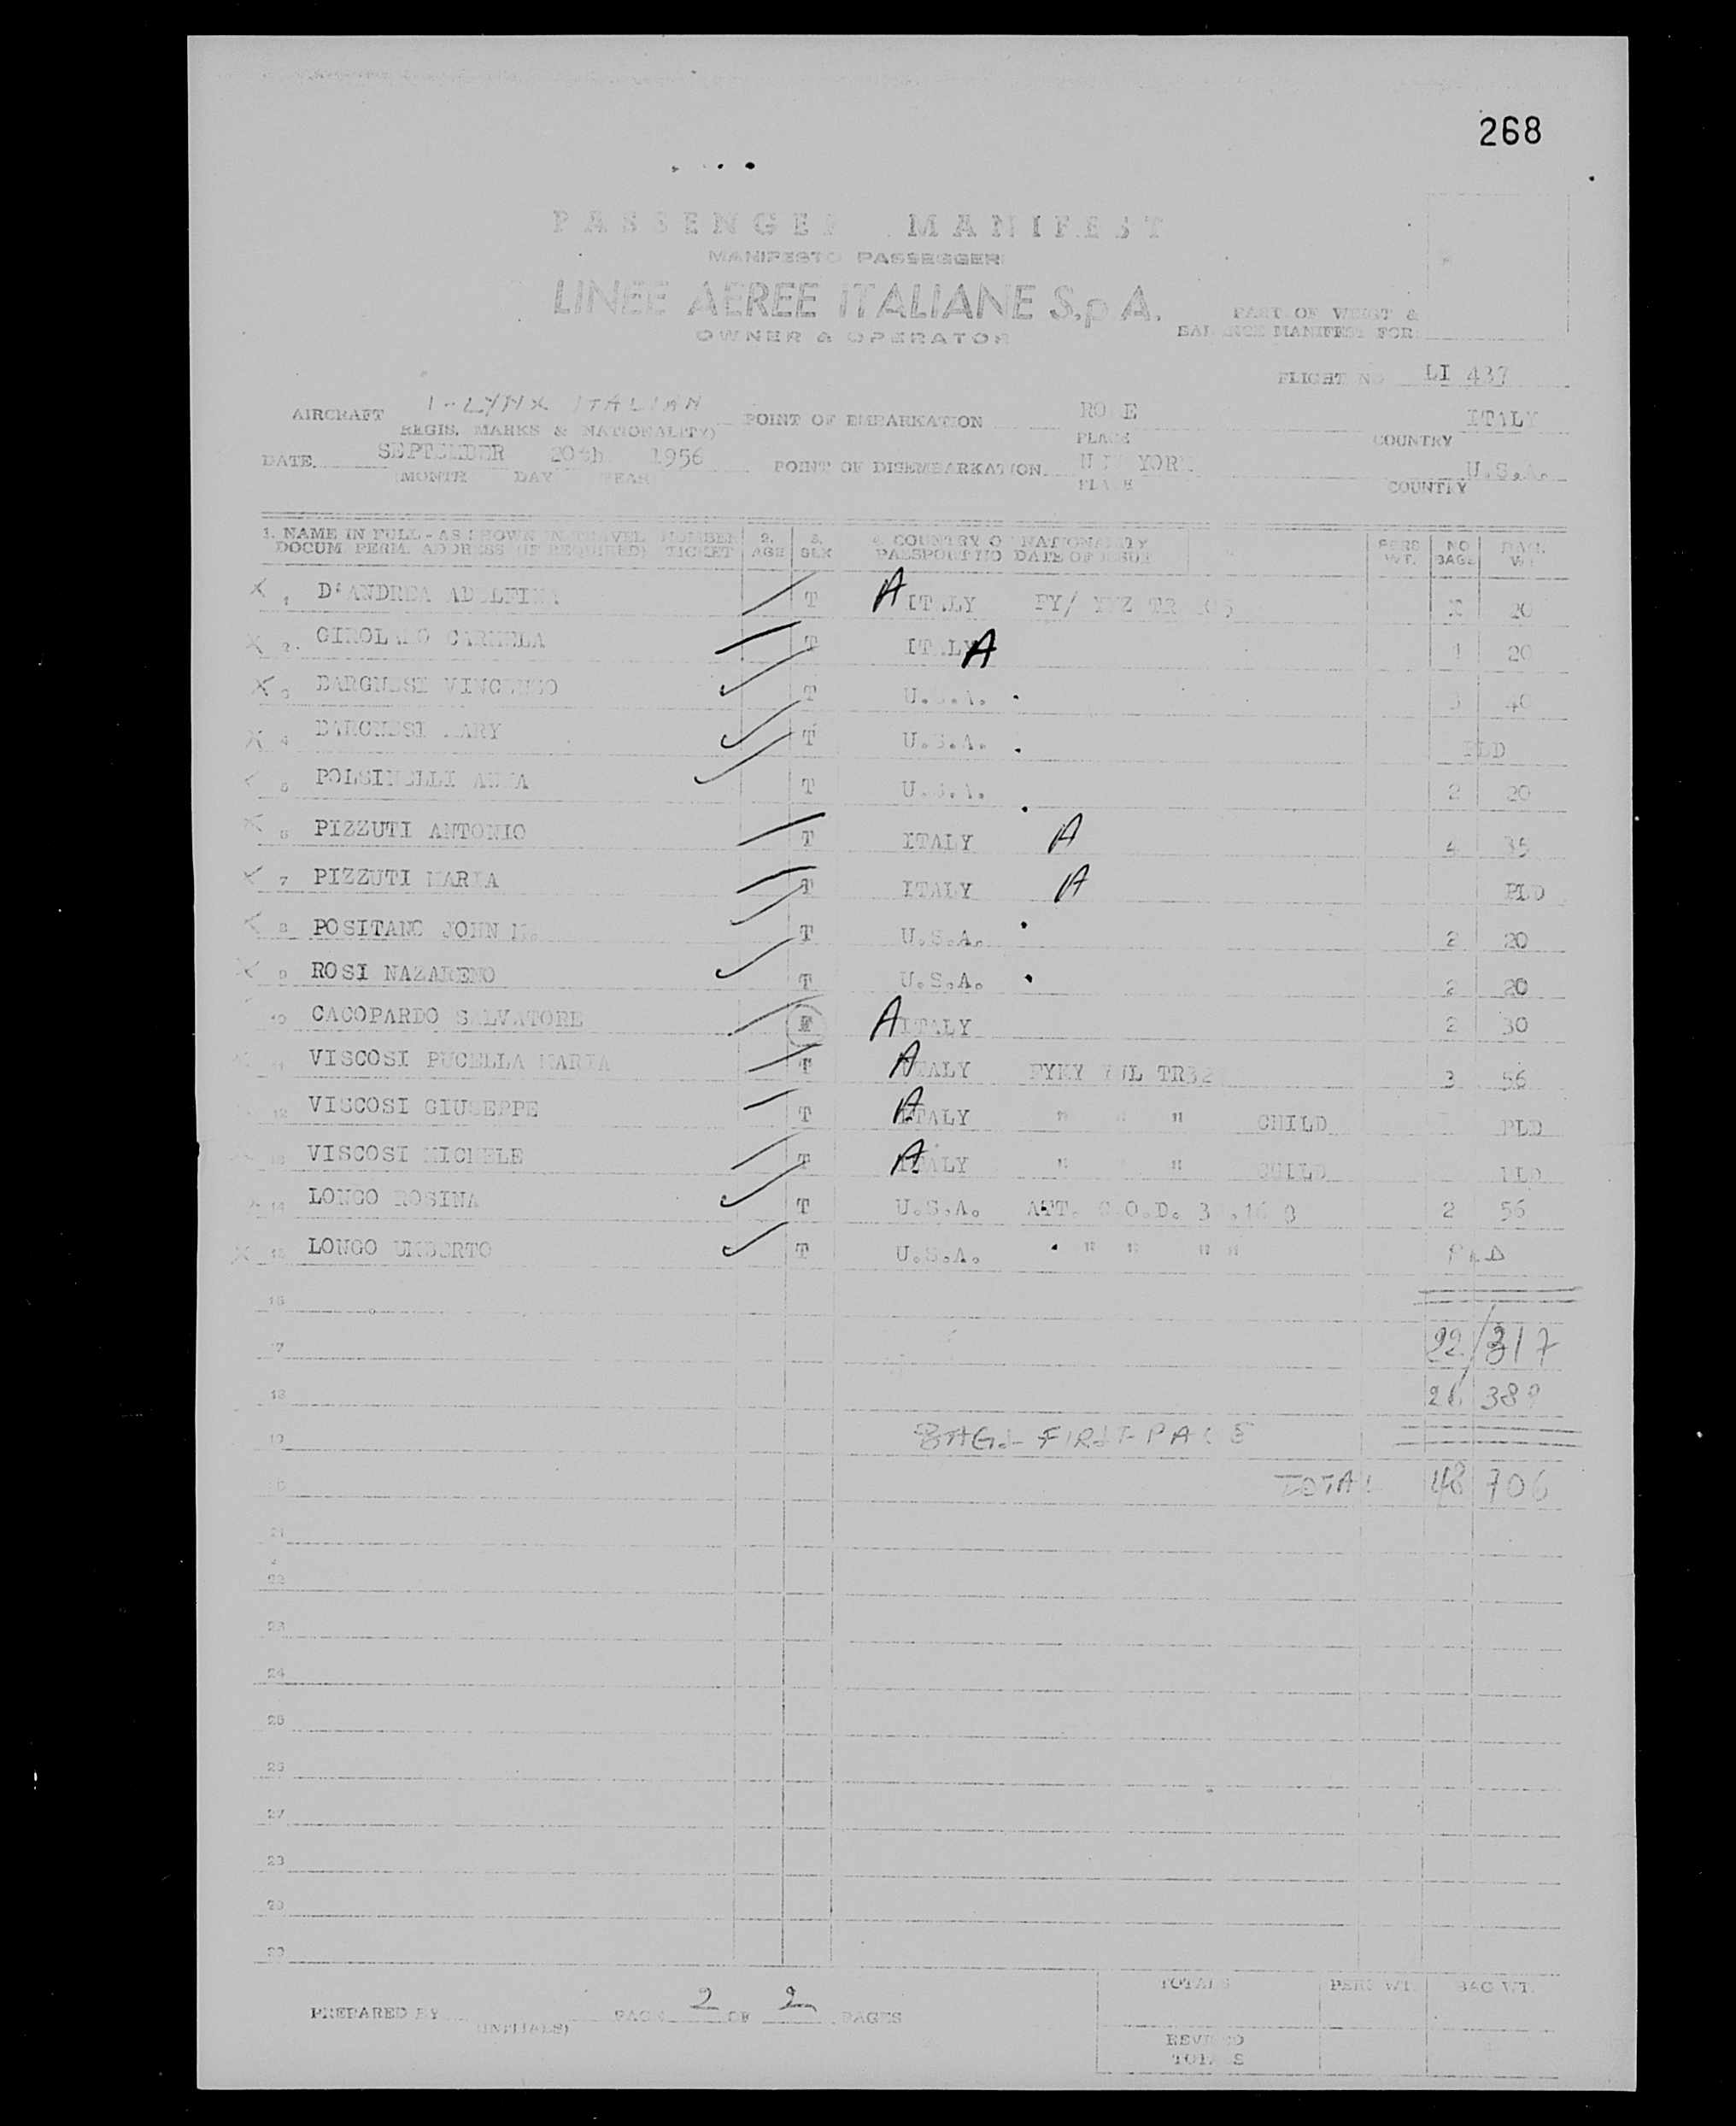 268
PASSENGER MANIFEST
MANIFESTO PASSEGGERI
LINEE AEREE ITALIANE S.p A.
OWNER & OPERATOR
PART OF WEIGT &
BALANCE MANIFEST FOR
FLIGHT NO LI 437
AIRCRAFT I-LYNX ITALIAN POINT OF EMBARKATION ROME ITALY
REGIS. MARKS & NATIONALITY) PLACE COUNTRY
DATE SEPTEMBER 20th 1956 POINT OF DISEMBARKATION NEW YORK U.S.A.
(MONTH DAY YEAR PLACE COUNTRY
1. NAME IN FULL - AS SHOWN IN TRAVEL NUMBER 2. 3. 4. COUNTRY OF NATIONALITY PERS NO BAG.
DOCUM. PERM. ADDRESS (IF REQUIRED) TICKET AGE SEX PASSPORT NO DATE OF ISSUE WT. BAGS WT
X 1 D'ANDREA ADELFINA T A ITALY 20
X 2. GIROLAMO CARMELA T ITALY A 1 20
X 3 BARGNESI VINCENZO T U.S.A. 40
X 4 BARGNESI MARY T U.S.A. PLD
5 POLSINELLI ANNA T U.S.A. 2 20
X 6 PIZZUTI ANTONIO T ITALY A 4 35
X 7 PIZZUTI MARIA T ITALY A PLD
8 POSITANO JOHN M. T U.S.A. 2 20
X 9 ROSI NAZARENO T U.S.A. 2 20
10 CACOPARDO SALVATORE F A ITALY 2 30
11 VISCOSI PUCELLA MARIA T A ITALY 3 56
12 VISCOSI GIUSEPPE T A ITALY " " " CHILD PLD
13 VISCOSI MICHELE T A ITALY " " CHILD PLD
14 LONGO ROSINA T U.S.A. 2 56
X 15 LONGO UMBERTO T U.S.A. " " " " PLD
16
17 22/317
18 26 389
19 BAGS FIRST PAGE
20 TOTAL 48 706
21
22
23
24
25
26
27
28
29
30
PREPARED BY PAGE 2 OF 2 PAGES
(INITIALS)
TOTALS PERS WT. BAG WT.
REVISED
TOTALS